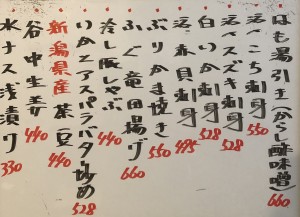 はも湯引き(からし酢味噌) 660
活べこち刺身 550
活べスズキ刺身 528
白いか刺身 528
活〆赤貝刺身 495
ぶりかま焼き 550
ふぐ竜田揚げ 660
冷し豚しゃぶ 440
いかとアスパラバター炒め 528
新潟県産茶豆 440
谷中生姜 440
水ナス浅漬け 330